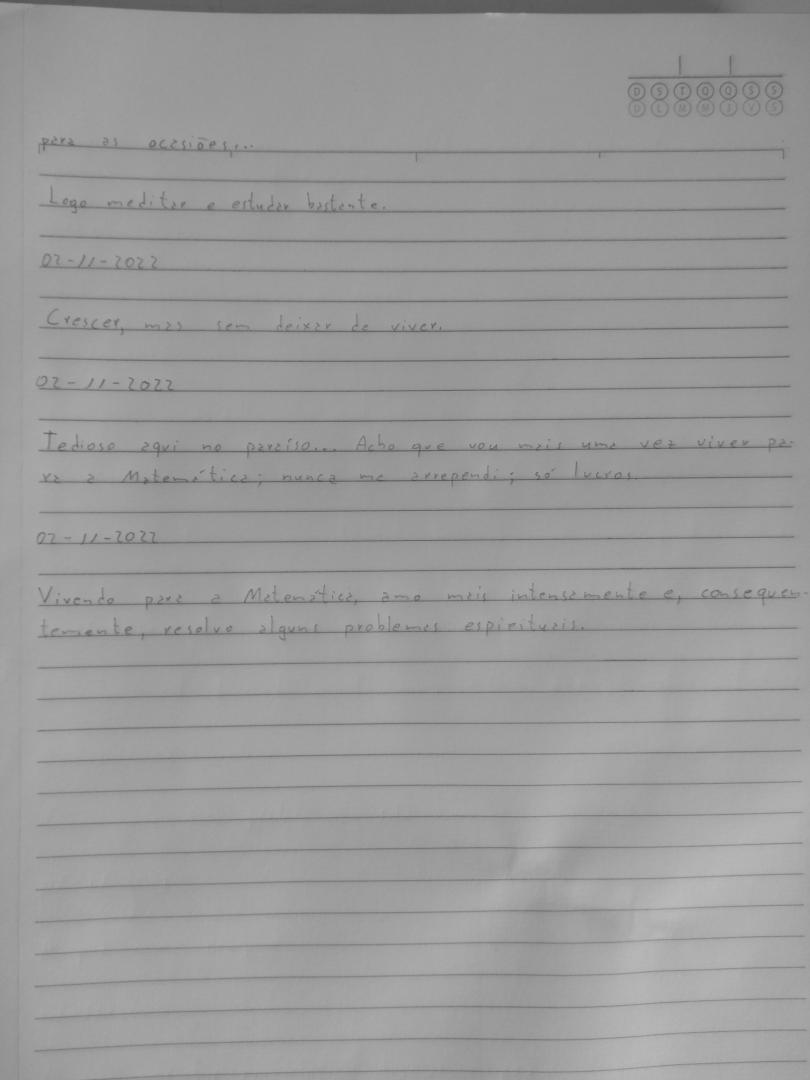 D S T Q Q S S
D L M M J V S
para as ocasiões...
Logo meditar e estudar bastante.
02-11-2022
Crescer, mas sem deixar de viver.
02-11-2022
Tedioso aqui no paraíso... Acho que vou mais uma vez viver pa-
ra a Matemática; nunca me arrependi; só lucros.
02-11-2022
Vivendo para a Matemática, amo mais intensamente e, consequen-
temente, resolvo alguns problemas espirituais.